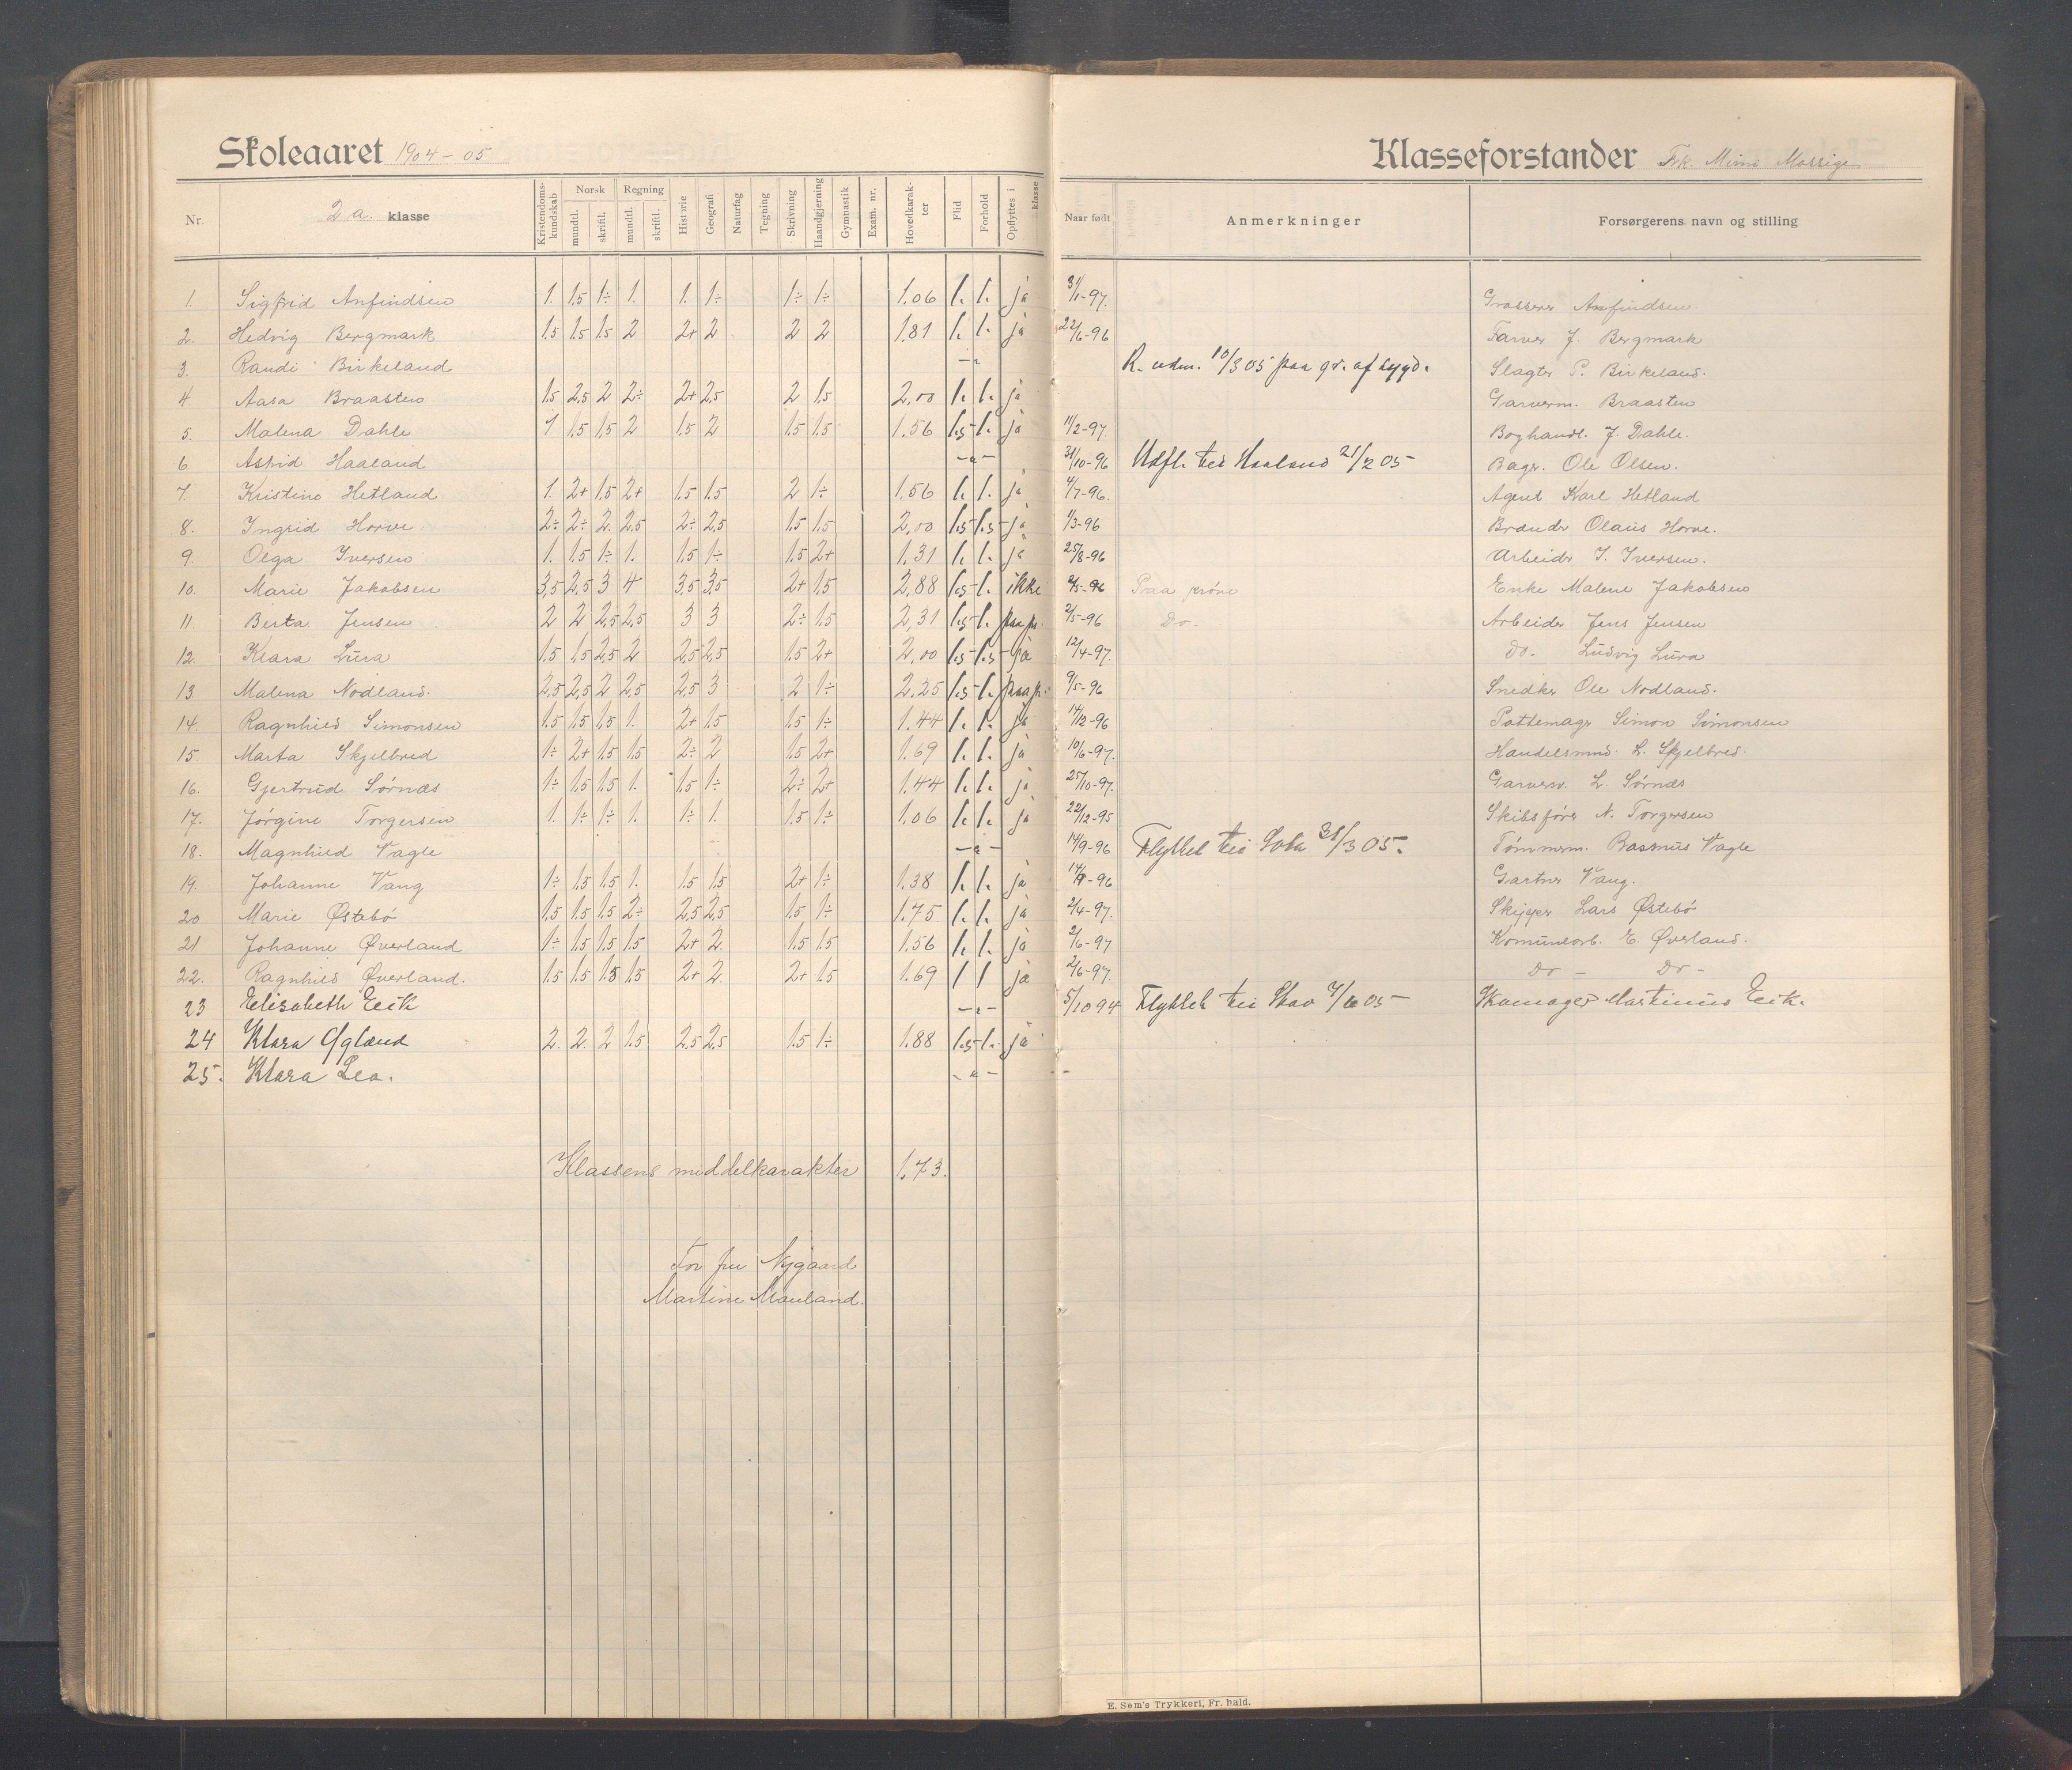 Skoleaaret 1904-05
Klasseforstander Frk. Mimi Mossige
Nr. 2 a. klasse Kristendomskundskab Norsk mundtl. skriftl. Regning mundtl. skriftl. Historie Geografi Naturfag Tegning Skrivning Haandgjerning Gymnastik Exam. nr. Hovedkarakter Flid Forhold Opflyttes i klasse Naar født Anmerkninger Forsørgerens navn og stilling
1. Sigfrid Anfindsen 1. 1.5 1÷ 1. 1. 1÷ 1÷ 1÷ 1.06 1. 1. ja 31/1-97. Grosserer Anfindsen
2. Hedvig Bergmark 1.5 1.5 1.5 2 2+ 2 2 2 1.81 1. 1. ja 22/6-96 Farver J. Bergmark
3. Randi Birkeland -"- R. udm. 10/3 05 paa gr. af sygd. Slagter P. Birkeland.
4. Aasa Braasten 1.5 2.5 2 2÷ 2+ 2.5 2 1.5 2,00 1. 1. ja Garverm. Braasten
5. Malena Dahle 1 1.5 1.5 2 1.5 2 1.5 1.5 1.56 1.5 1. ja 11/2-97. Boghandl. J. Dahle.
6. Astrid Haaland -"- 31/10-96 Udfl. til Haaland 21/2 05 Bager. Ole Olsen.
7. Kristine Hetland 1. 2+ 1.5 2+ 1.5 1.5 2 1÷ 1.56 1. 1. ja 4/7-96. Agent Karl Hetland
8. Ingrid Horve. 2÷ 2÷ 2. 2.5 2÷ 2.5 1.5 1.5 2,00 1.5 1.5 ja 1/3-96 Brænder Olaus Horve.
9. Olga Iversen 1. 1.5 1÷ 1. 1.5 1÷ 1.5 2+ 1.31 1. 1. ja 25/8-96 Arbeider I. Iversen.
10. Marie Jakobsen 3,5 2,5 3 4 3,5 3,5 2+ 1.5 2,88 1.5 1. ikke 8/5-96 Paa prøve Enke Malene Jakobsen
11. Berta Jensen 2 2 2,5 2,5 3 3 2÷ 1.5 2,31 1.5 1. paa pr. 2/5-96 Do. Arbeider Jens Jensen
12. Klara Lura 1.5 1.5 2.5 2 2.5 2.5 1.5 2+ 2,00 1.5 1.5 ja 12/4-97. Do. Ludvig Lura
13. Malena Nodland. 2,5 2,5 2 2,5 2,5 3 2 1÷ 2.25 1.5 1. paa p. 9/5-96 Snedker Ole Nodland.
14. Ragnhild Simonsen 1.5 1.5 1.5 1. 2+ 1.5 1.5 1÷ 1.44 1. 1. ja 14/12-96 Pottemager Simon Simonsen
15. Marta Skjelbred 1÷ 2+ 1.5 1.5 2÷ 2 1.5 2+ 1.69 1. 1. ja 10/6-97. Handelsmnd. L. Skjelbred.
16. Gjertrud Sørnæs 1÷ 1.5 1.5 1. 1.5 1÷ 2÷ 2+ 1.44 1. 1. ja 25/10-97. Garverm. L. Sørnæs
17. Jørgine Torgersen 1. 1÷ 1÷ 1. 1÷ 1. 1.5 1÷ 1.06 1. 1. ja 22/12-95 Skibsfører N. Torgersen
18. Magnhild Vagle -"- 14/9-96 Flyttet til 31/3 05. Tømmerm. Rasmus Vagle
19. Johanne Vang 1÷ 1.5 1.5 1. 1.5 1.5 2+ 1÷ 1.38 1. 1. ja 14/9-96 Gartner Vang.
20 Marie Østebö 1.5 1.5 1.5 2÷ 2,5 2,5 1.5 1÷ 1.75 1. 1. ja 2/4-97. Skipper Lars Østebö
21 Johanne Øverland 1÷ 1.5 1.5 1.5 2+ 2. 1.5 1.5 1.56 1. 1. ja 2/6-97 Komunearb. E. Øverland.
22. Ragnhild Øverland. 1.5 1.5 1.5 1.5 2+ 2. 2+ 1.5 1.69 1 1 ja 2/6-97. Do - Do -
23 Elisabeth Eeik -"- 5/10 94 Flyttet til 7/6 05 Skomager Martinius Eeik.
24 Klara Ogland 2. 2. 2 1.5 2.5 2,5 1.5 1÷ 1.88 1.5 1. ja
25. Klara Lea. -"- -
Klassens middelkarakter 1.73.
For fru Nygaard
Martine Mauland.
E. Sem's Trykkeri, Fr. hald.